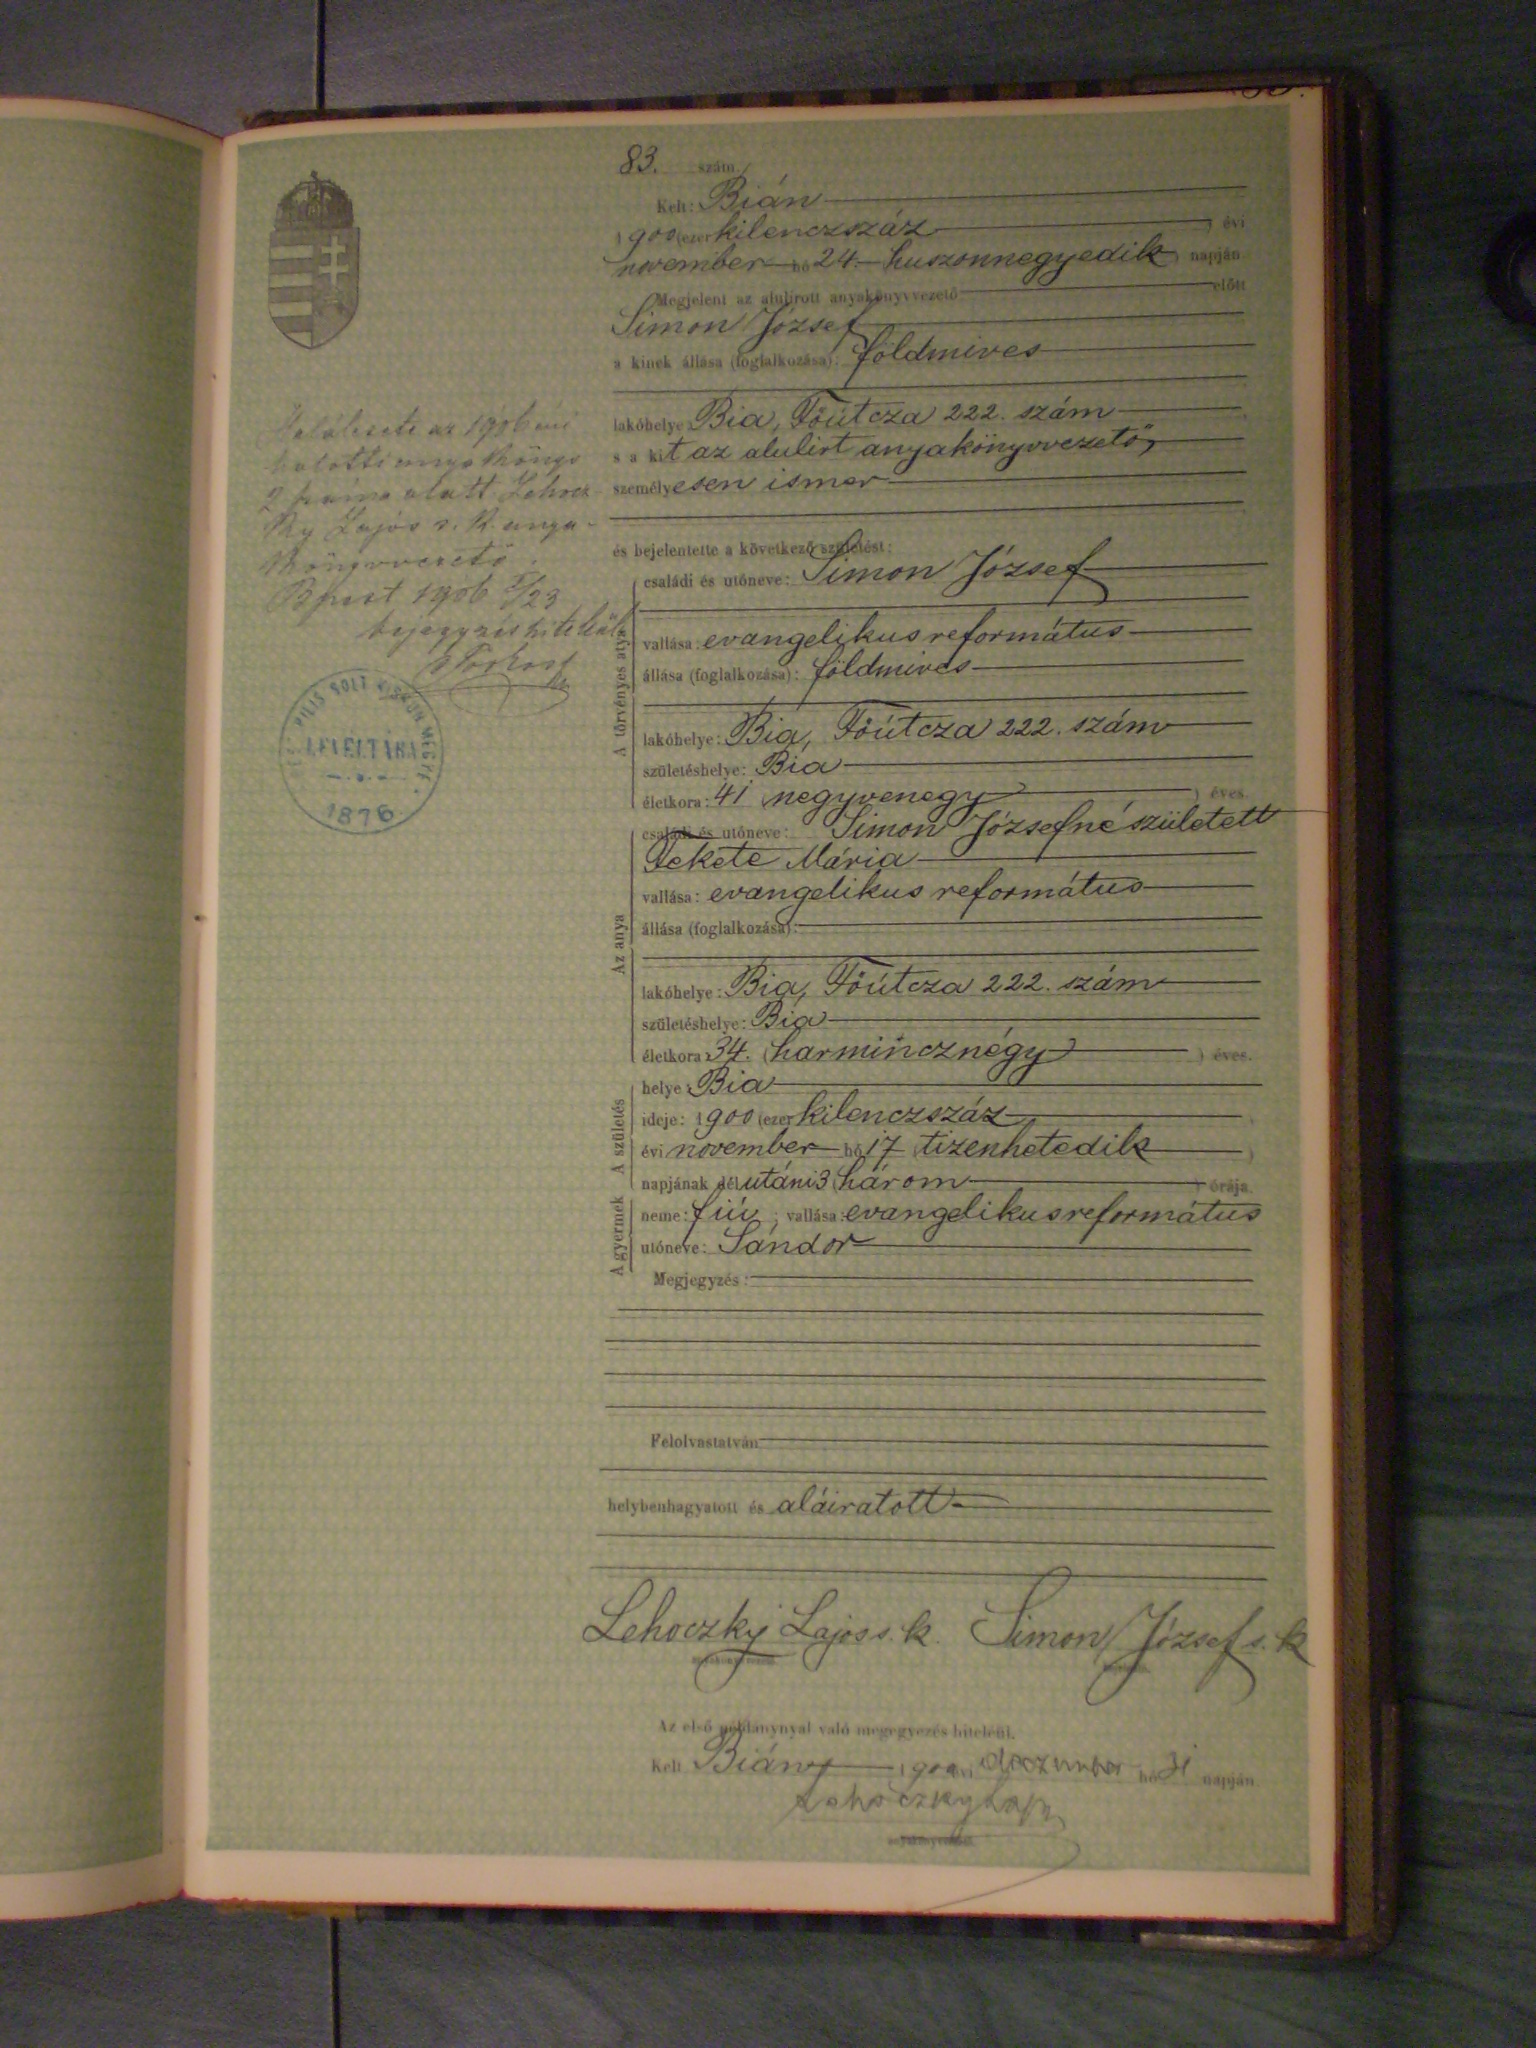 83. szám.
Kelt: Bián
1900 (ezer kilenczszáz) évi
november hó 24. huszonnegyedik) napján
Megjelent az alulirott anyakönyvvezető előtt
Simon József
a kinek állása (foglalkozása): földmives
lakóhelye: Bia, Főútcza 222. szám
s a kit az alulirt anyakönyvvezető,
személyesen ismer
és bejelentette a következő születést:
A törvényes atya
családi és utóneve: Simon József
vallása: evangelikus református
állása (foglalkozása): földmives
lakóhelye: Bia, Főútcza 222. szám
születéshelye: Bia
életkora: 41 (negyvenegy) éves.
Az anya
családi és utóneve: Simon Józsefné született
Fekete Mária
vallása: evangelikus református
állása (foglalkozása):
lakóhelye: Bia, Főútcza 222. szám
születéshelye: Bia
életkora: 34. (harmincznégy) éves.
A születés
helye: Bia
ideje: 1900 (ezer kilenczszáz
évi november hó 17 tizenhetedik)
napjának délutáni 3 (három) órája.
A gyermek
neme: fiú; vallása: evangelikus református
utóneve: Sándor
Megjegyzés:
Felolvastatván
helybenhagyatott és aláiratott
Lehoczky Lajos s. k. Simon József s. k
anyakönyvvezető
Az első példánynyal való megegyezés hiteléül.
Kelt Bián 1900 évi deczember hó 31 napján
Lehoczky Lajos
anyakönyvvezető
Halálesete az 1906 évi
halotti anyakönyv
szám alatt Lehocz
ky Lajos s. k. anya-
könyvvezető.
Bpest 1906 5/23
bejegyzés hiteléül
PEST PILIS SOLT KISKUN MEGYE
LEVÉLTÁRA
1876